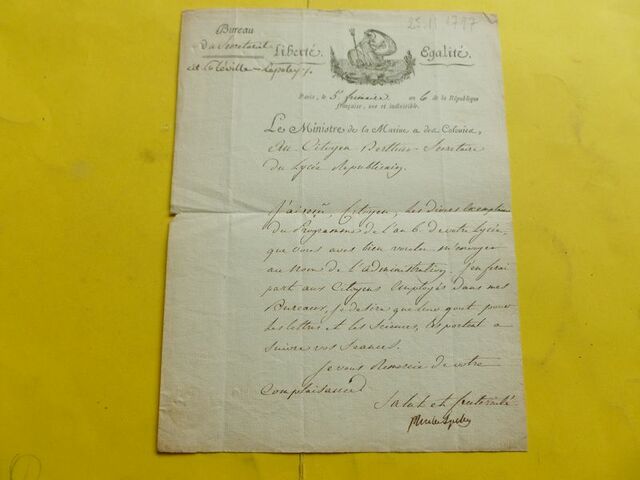 25. 11 1797
Bureau
Du Secrétariat
Liberté. Egalité.
Paris, le 5 frimaire an 6 de la République
française, une et indivisible.
Le Ministre de la Marine et des Colonies,
Au Citoyen Secretaire
Du Lycée Republicain.
J'ai reçu, Citoyen, les divers Exemplaires
Du Programme de l'an 6. de votre Lycée,
que vous avez bien voulu m'envoyer
au nom de l'administration. J'en ferai
part aux Citoyens Employés dans mes
Bureaux. Je desire que leur gout pour
les lettres et les Sciences, les portent a
suivre vos Séances.
Je vous Remercie de votre
Complaisance
Salut et fraternité